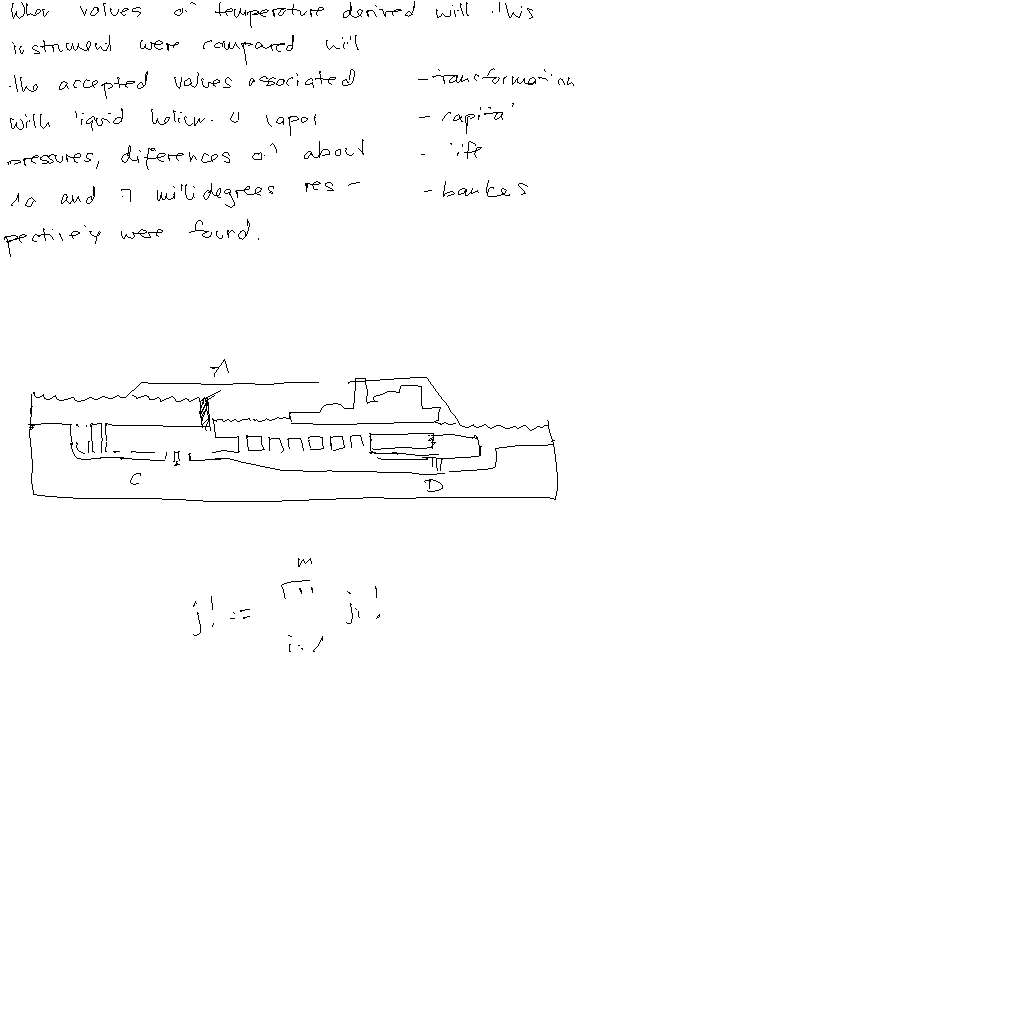 When values of temperature derived with this
instrument were compared with
the accepted values associated
with liquid helium 4 vapor
pressures, diferences of about
10 and 7 millidegrees res-
pectively were found.
- transformation
- capital
- life
- bankes
A
C
D
m
j! := ∏ ji!
i=1